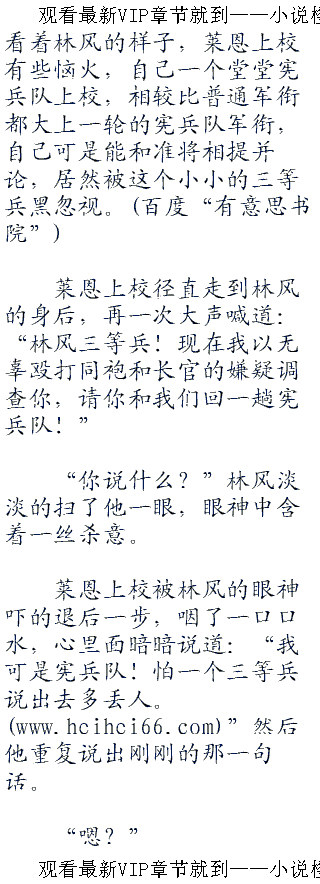 观看最新VIP章节就到——小说检
看着林风的样子，莱恩上校
有些恼火，自己一个堂堂宪
兵队上校，相较比普通军衔
都大上一轮的宪兵队军衔，
自己可是能和准将相提并
论，居然被这个小小的三等
兵黑忽视。(百度“有意思书
院”)
莱恩上校径直走到林风
的身后，再一次大声喊道：
“林风三等兵！现在我以无
辜殴打同袍和长官的嫌疑调
查你，请你和我们回一趟宪
兵队！”
“你说什么？”林风淡
淡的扫了他一眼，眼神中含
着一丝杀意。
莱恩上校被林风的眼神
吓的退后一步，咽了一口口
水，心里面暗暗说道：“我
可是宪兵队！怕一个三等兵
说出去多丢人。
(www.hcihci66.com)”然后
他重复说出刚刚的那一句
话。
“嗯？”
观看最新VIP章节就到——小说检